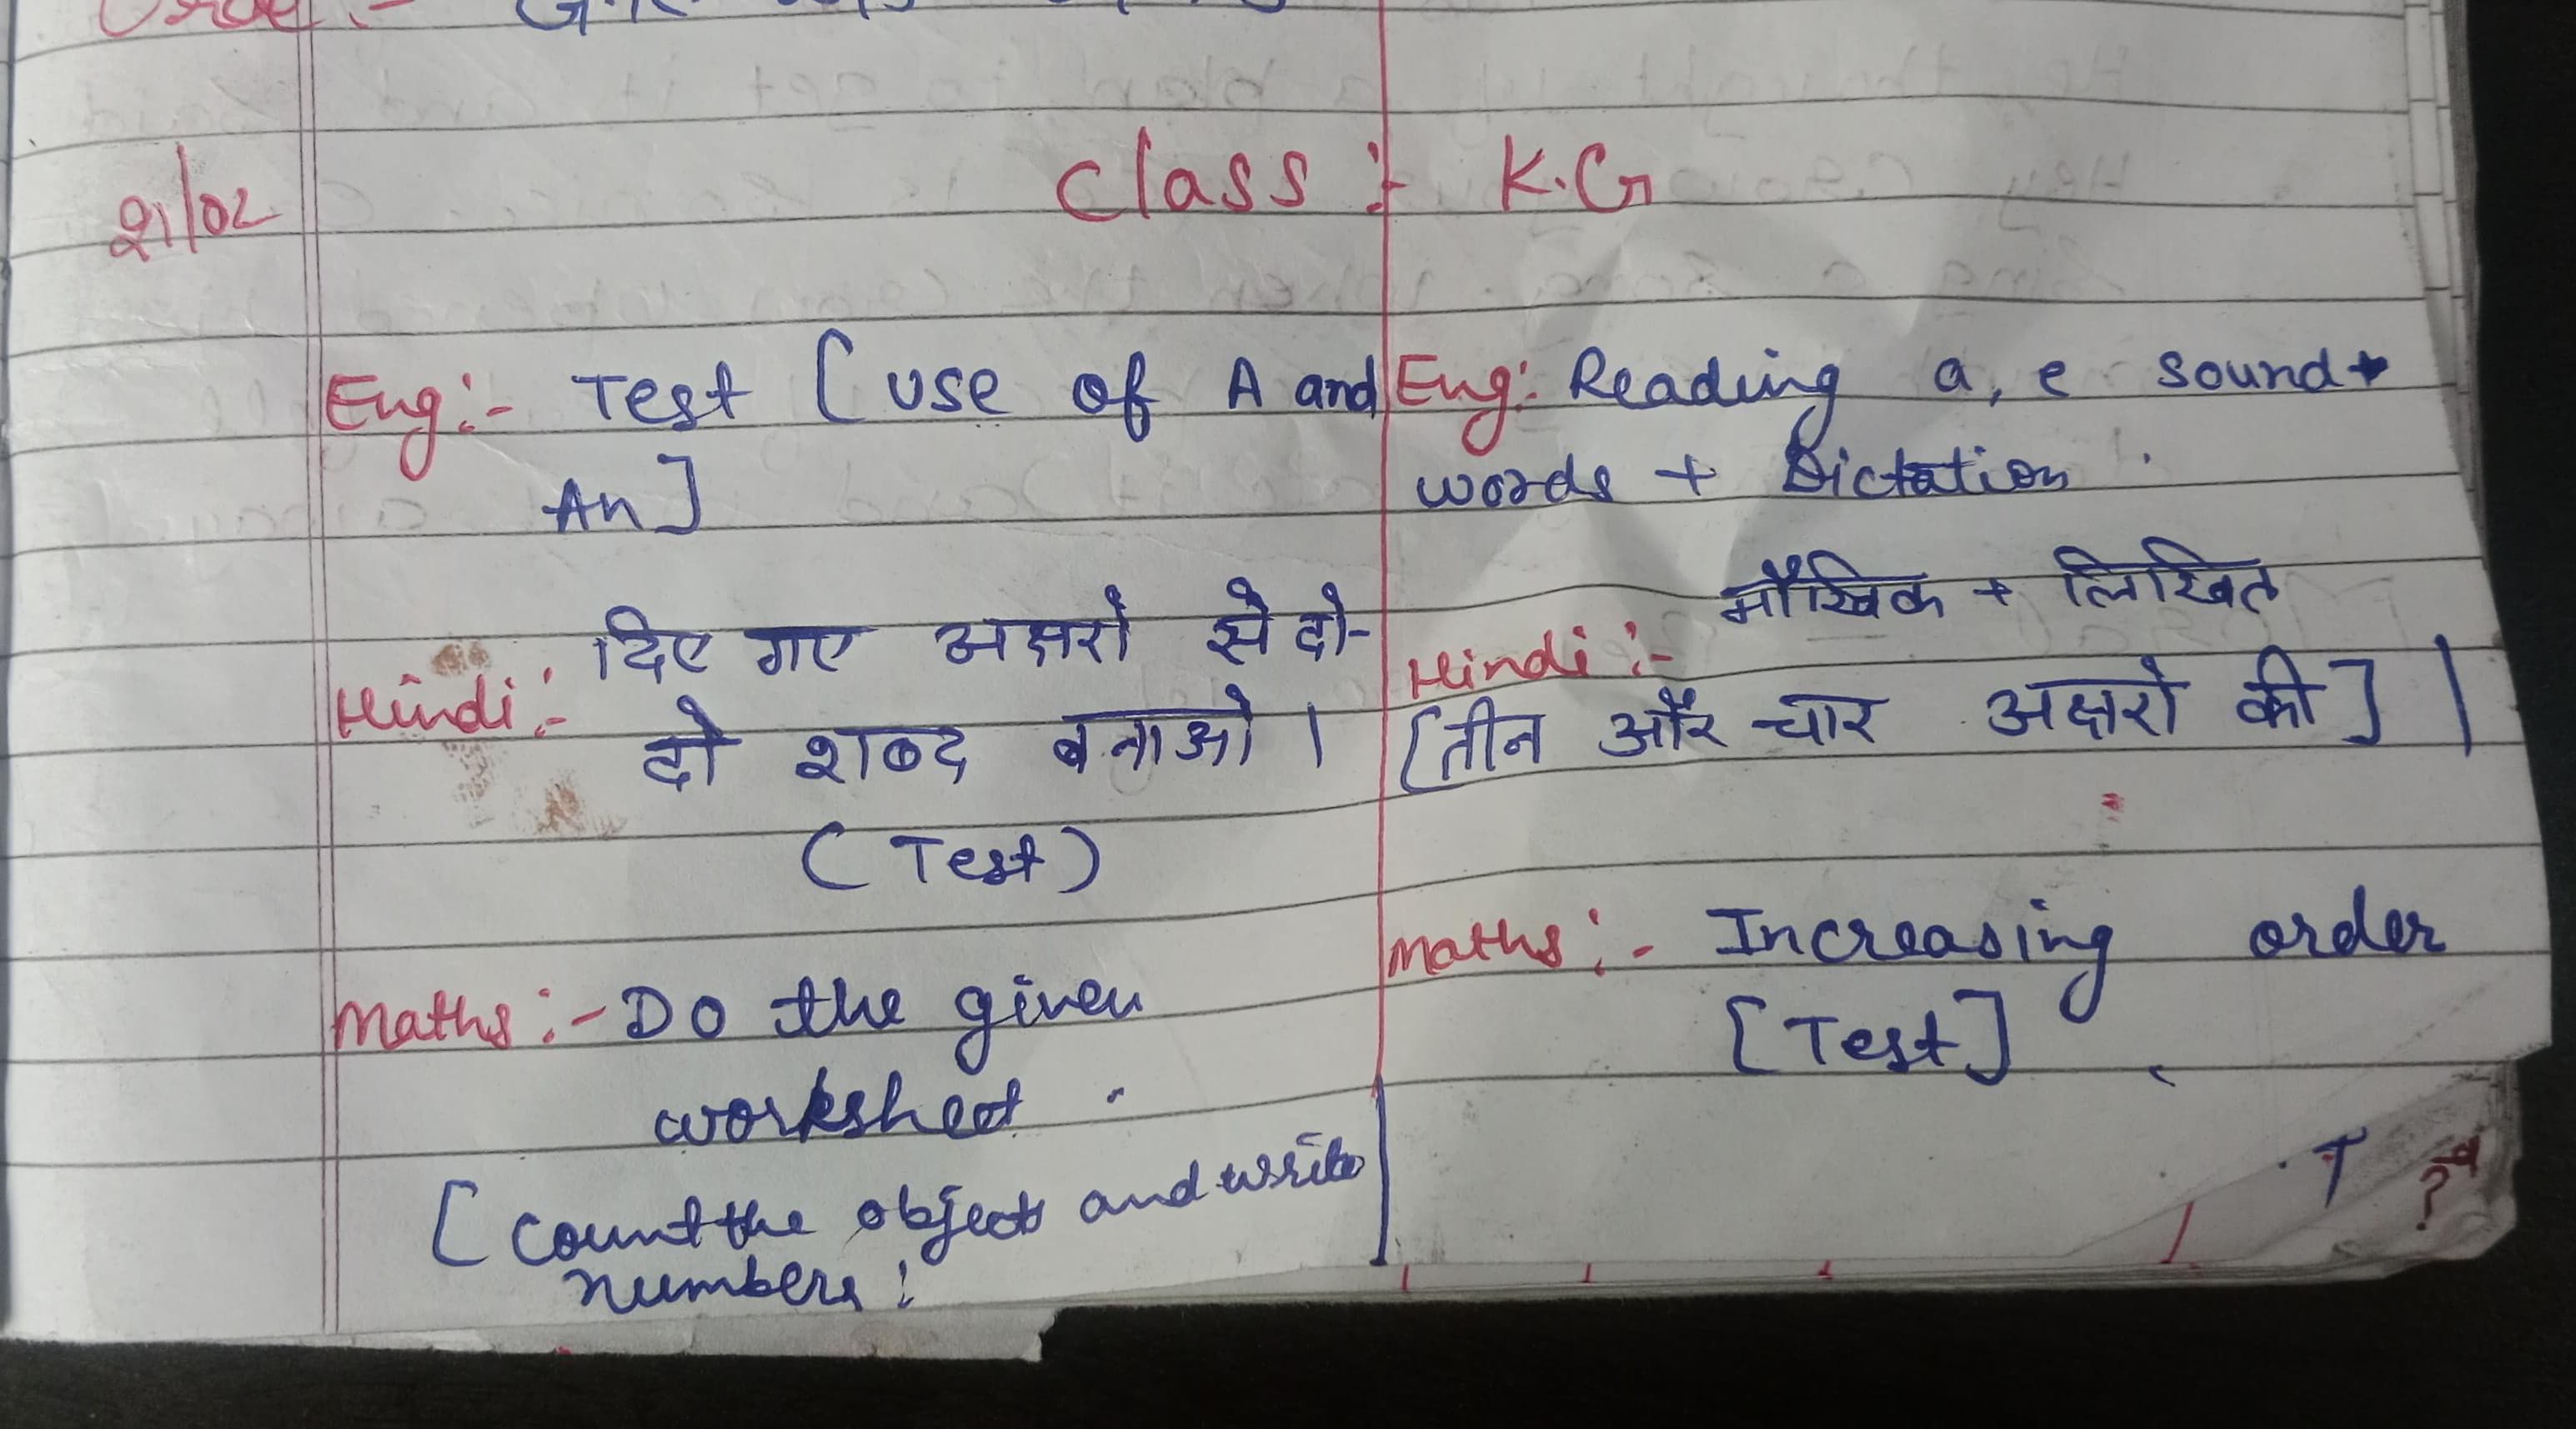 Class :- K.G
21/02
Eng:- Test [use of A and
An]
Hindi:- दिए गए अक्षरो से दो-
दो शब्द बनाओ ।
(Test)
Maths:- Do the given
worksheet .
[Count the objects and write
numbers:
Eng:- Reading a, e sound +
words + Dictation .
मौखिक + लिखित
Hindi:-
[तीन और चार अक्षरो की] |
Maths:- Increasing order
[Test]
T